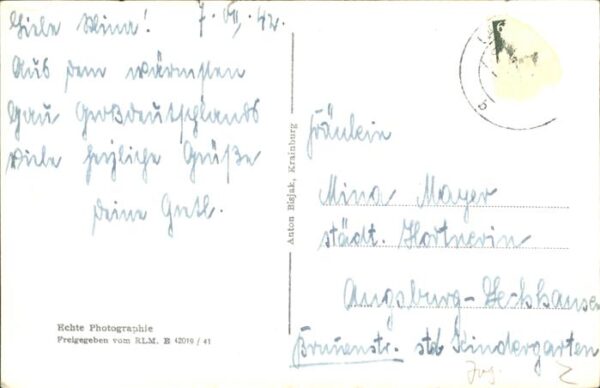 Liebe Mina! 7. VII. 42.
Aus dem wärmsten
Gau Großdeutschlands
viele herzliche Grüße
deine Gretl.
Echte Photographie
Freigegeben vom RLM. E 42019 / 41
Anton Bisjak, Krainburg
6
Fräulein
Mina Mayer
städt. Hortnerin
Augsburg-
Brunnenstr. std Kindergarten